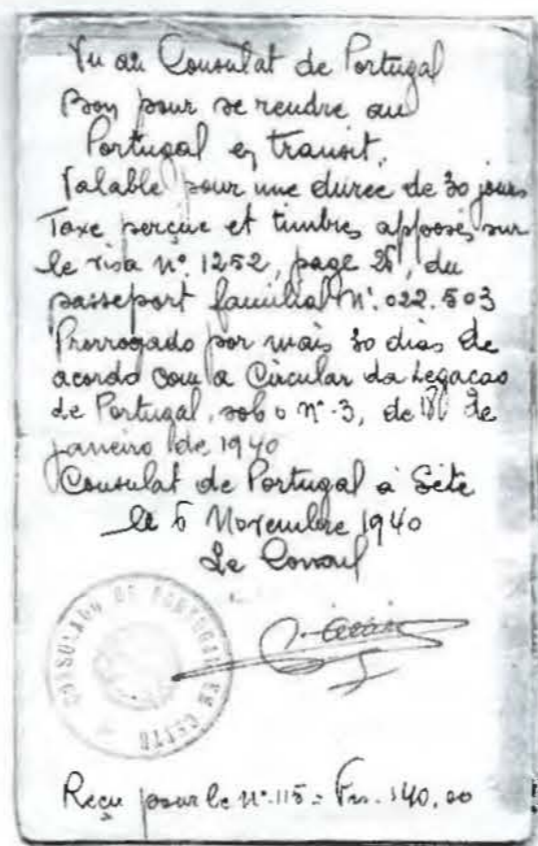 Vu au Consulat de Portugal
Bon pour se rendre au
Portugal en transit,
Valable pour une durée de 30 jours
Taxe perçue et timbres apposés sur
le visa nº 1252, page 25, du
passeport familial Nº. 022.503
Prorrogado por mais 30 dias de
acordo com a Circular da Legacao
de Portugal, sob o nº 3, de de
janeiro de 1940
Consulat de Portugal à Sète
le 6 Novembre 1940
Le Consul
CONSULADO DE PORTUGAL EM CETTE
Reçu pour le nº. 115 = Frs. 140,00